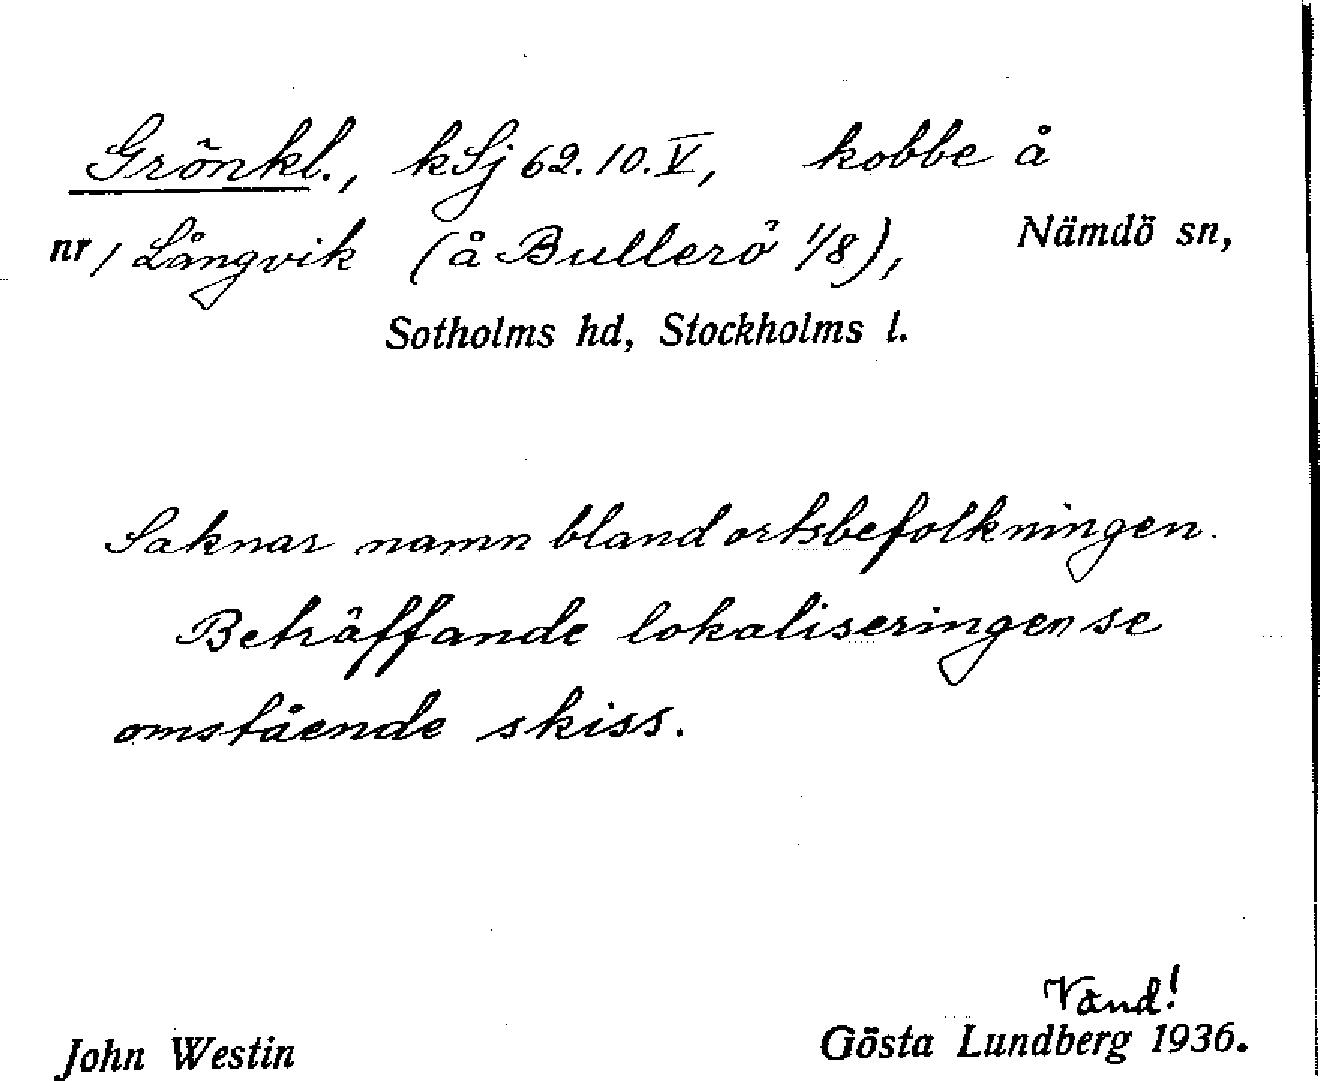 Grönkl., kSj 62.10.V, kobbe å
nr 1 Långvik (å Bullerö 1/8), Nämdö sn,
Sotholms hd, Stockholms l.
Saknar namn bland ortsbefolkningen.
Beträffande lokaliseringen se
omstående skiss.
Vänd!
John Westin Gösta Lundberg 1936.